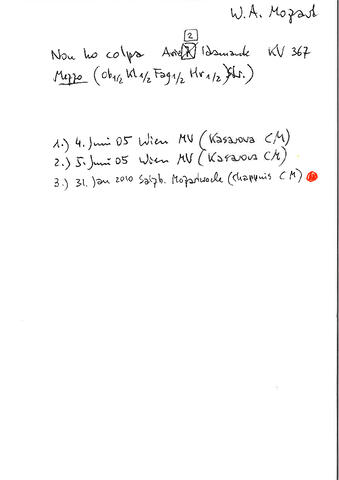 W.A. Mozart
2
Non ho colpa Arie Idamante KV 367
Mezzo (Ob 1/2 Kl 1/2 Fag 1/2 Hr 1/2) Str.)
1.) 4. Juni 05 Wien MV (Kasarova CM)
2.) 5. Juni 05 Wien MV (Kasarova CM)
3.) 31. Jan 2010 Salzb. Mozartwoche (Chappuis CM)